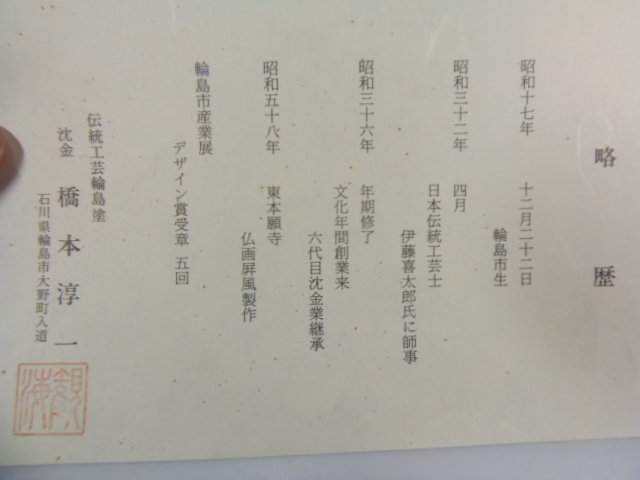 略歴
昭和十七年 十二月二十二日
輪島市生
昭和三十二年 四月
日本伝統工芸士
伊藤喜太郎氏に師事
昭和三十六年 年期修了
文化年間創業来
六代目沈金業継承
昭和五十八年 東本願寺
仏画屏風製作
輪島市産業展
デザイン賞受章 五回
伝統工芸輪島塗
沈金 橋本淳一
石川県輪島市大野町入道